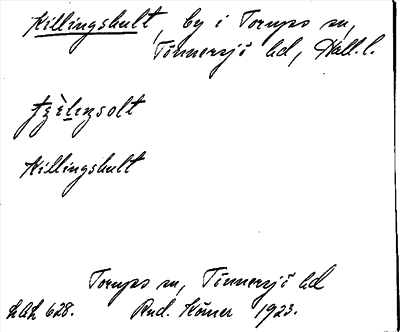 Killingshult, by i Torups sn,
Tönnersjö hd, Hall.l.
Killingshult
Torups sn, Tönnersjö hd
628. Rud. Körner 1923.